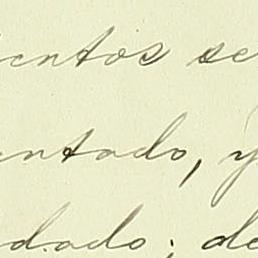 ientos se
entado, y
dado; de